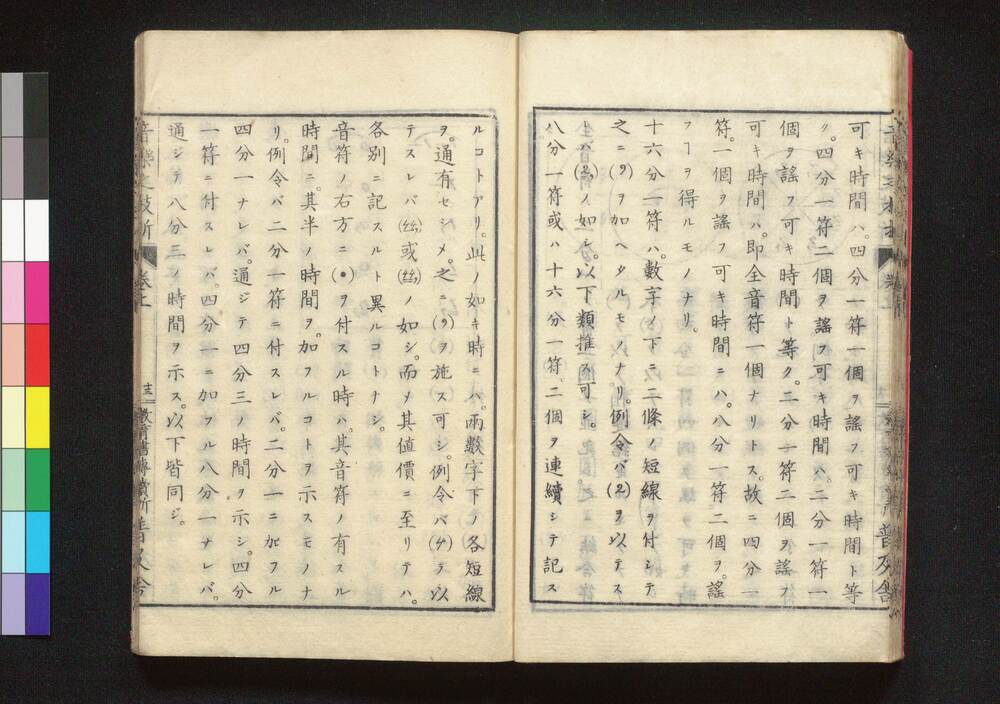 可キ時間ハ。四分一符一個ヲ謠フ可キ時間ト等
ク。四分一符二個ヲ謠フ可キ時間ハ。二分一符一
個ヲ謠フ可キ時間ト等ク。二分一符二個ヲ謠フ
可キ時間ハ。即全音符一個ナリトス。故ニ四分一
符。一個ヲ謠フ可キ時間ニハ。八分一符二個ヲ。謠
フヿヲ得ルモノナリ。
十六分一符ハ。數字ノ下ニ二條ノ短線ヲ付シテ
之ニ
ヲ加ヘタルモノナリ。例令バ(2)ヲ以テス
レバ(2)ノ如シ。以下類推ス可シ。
八分一符或ハ十六分一符、二個ヲ連續シテ記ス
ルコトアリ。此ノ如キ時ニハ。兩數字下ノ各短線
ヲ。通有セシメ。之ニ
ヲ施ス可シ。例令バ
ヲ以
テスレバ
或
ノ如シ。而メ其値價ニ至リテハ。
各別ニ記スルト異ルコトナシ。
音符ノ右方ニ(•)ヲ付スル時ハ。其音符ノ有スル
時間ニ。其半ノ時間ヲ。加フルコトヲ示スモノナ
リ。例令バ二分一符ニ付スレバ。二分一ニ加フル
四分一ナレバ。通ジテ四分三ノ時間ヲ示シ。四分
一符ニ付スレバ。四分一ニ加フル八分一ナレバ。
通ジテ八分三ノ時間ヲ示ス。以下皆同ジ。
音樂之枝折
卷上
十三
教育書專賣所普及舍